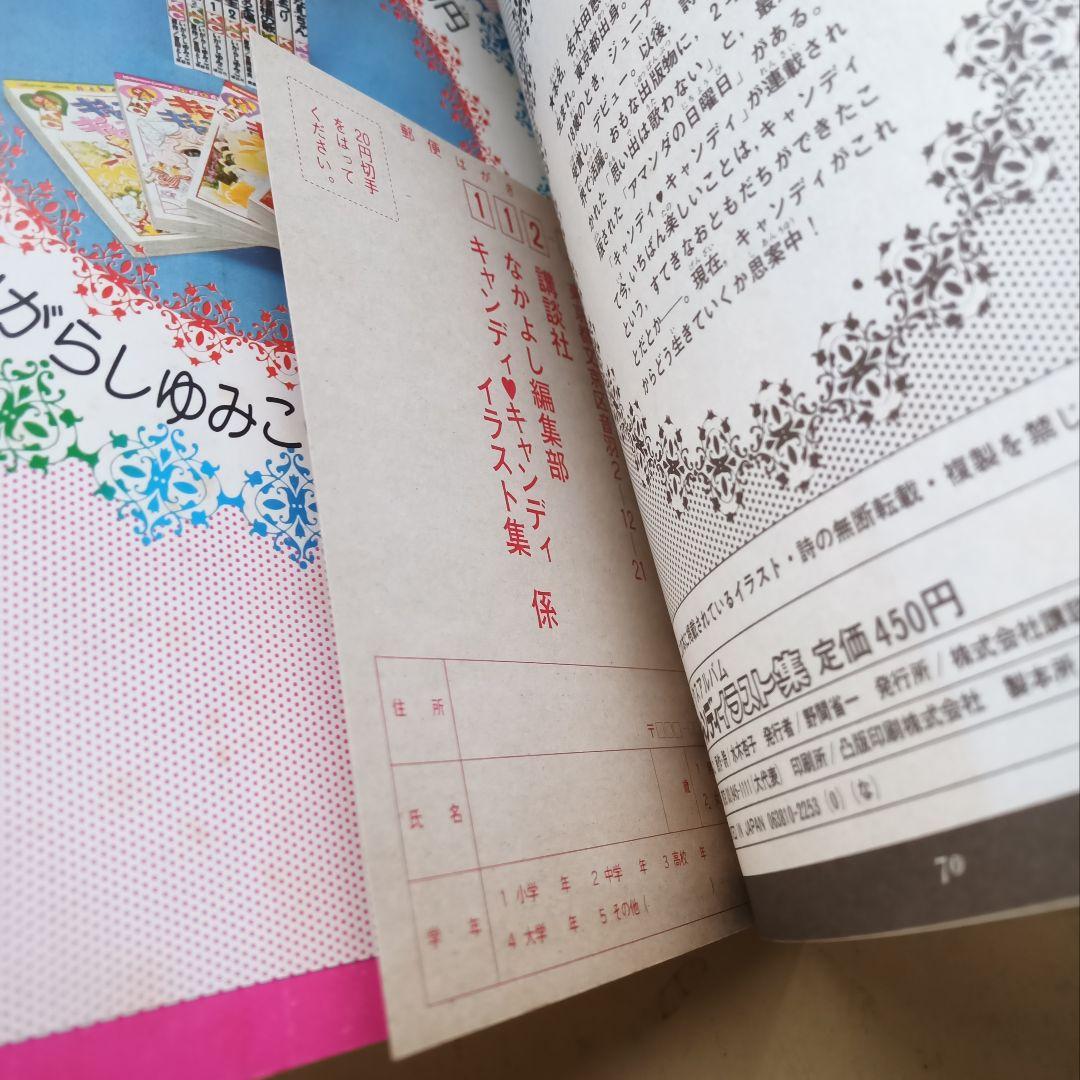 がらしゆみこ
円
20円切手
をはって
ください。
郵便はがき
112
2-12-21
講談社
なかよし編集部
キャンディ♥キャンディ
イラスト集
係
住所
〒
氏名
歳
学年
1 小学 年 2 中学 年 3 高校 年
4 大学 年 5 その他(
東京都出身。
13歳のとき、ジュニア
デビュー。以後、詩
おもな出版物に、
「思い出は歌わない」と、
「アマンダの日曜日」がある。
「キャンディ♥キャンディ」が連載され
て今、いちばん楽しいことは、キャンディ
という、すてきなおともだちができたこ
とだとか——。現在、キャンディがこれ
からどう生きていくか思案中!
されているイラスト・詩の無断転載・複製を禁じ
アルバム
イラスト集 定価450円
水木杏子 発行者/野間省一 発行所/株式会社講談
945-1111(大代表) 印刷所/凸版印刷株式会社 製本所
IN JAPAN 063810-2253 (0) (な)
70